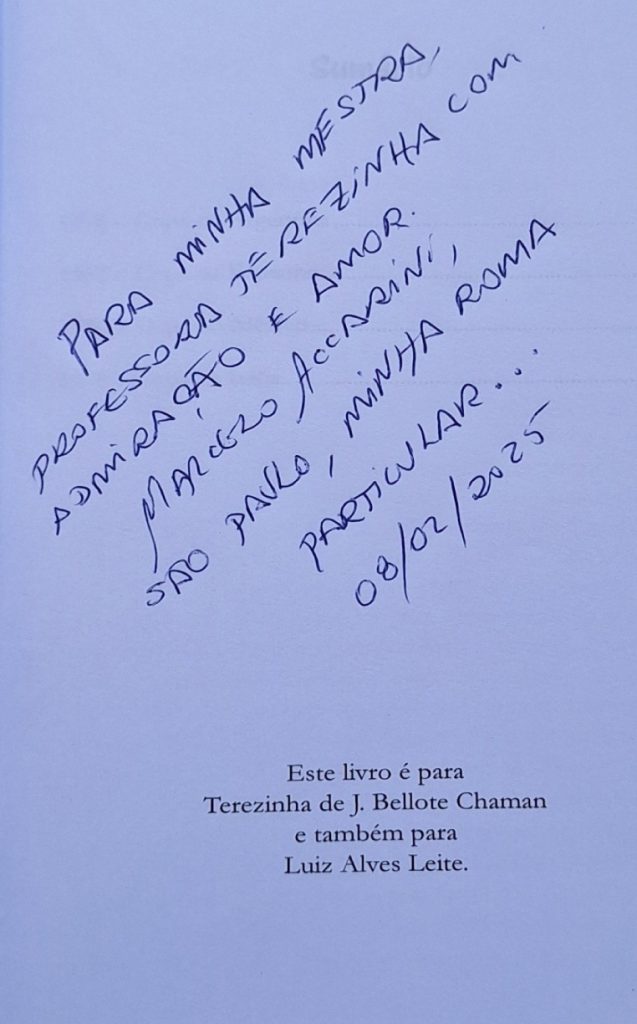 PARA MINHA MESTRA,
PROFESSORA TEREZINHA COM
ADMIRAÇÃO E AMOR.
MARCELO ACCARINI,
SÃO PAULO, MINHA ROMA
PARTICULAR...
08/02/2025
Este livro é para
Terezinha de J. Bellote Chaman
e também para
Luiz Alves Leite.